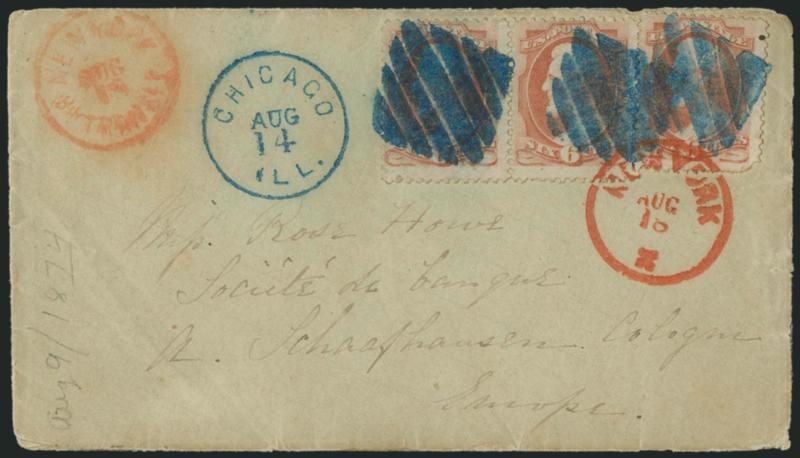 NEW YORK
AUG
TRANSIT
CHICAGO
AUG
14
ILL.
U.S. POSTAGE
SIX 6
NEW YORK
AUG
18
Miss. Rose Howe
Société de banque
A. Schaafhausen. Cologne
Europe.
Aug 9/1874